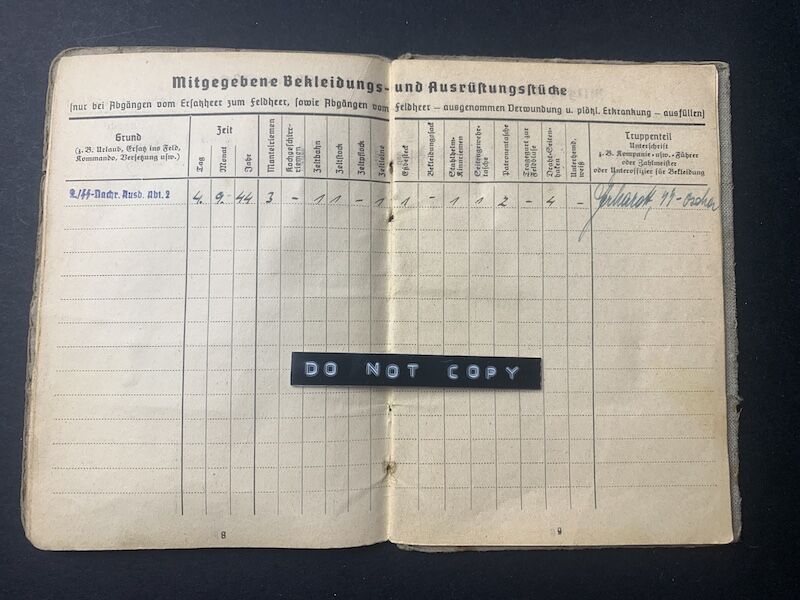 Mitgegebene Bekleidungs- und Ausrüstungsstücke
(nur bei Abgängen vom Ersatzheer zum Feldheer, sowie Abgängen vom Feldheer – ausgenommen Verwundung u. plötzl. Erkrankung – ausfüllen)
Grund
(z. B. Urlaub, Ersatz ins Feld,
Kommando, Versetzung usw.)
Zeit
Tag
Monat
Jahr
Mantelriemen
Kochgeschirr-
riemen
Zeltbahn
Zeltstock
Zeltpflock
Zeltleine
Eßbesteck
Bekleidungssack
Stahlhelm-
Kinnriemen
Seitengewehr-
tasche
Patronentasche
Traggegurt zur
Feldbluse
Draht-Seiten-
haken
Unterhemd,
weiß
Truppenteil
Unterschrift
z. B. Kompanie- usw. -Führer
oder Zahlmeister
oder Unteroffizier für Bekleidung
2./SS-Nachr. Ausb. Abt. 2
4. 9. 44 3 – 1 1 – 1 1 – 1 1 2 – 4 –
DO NOT COPY
8
9